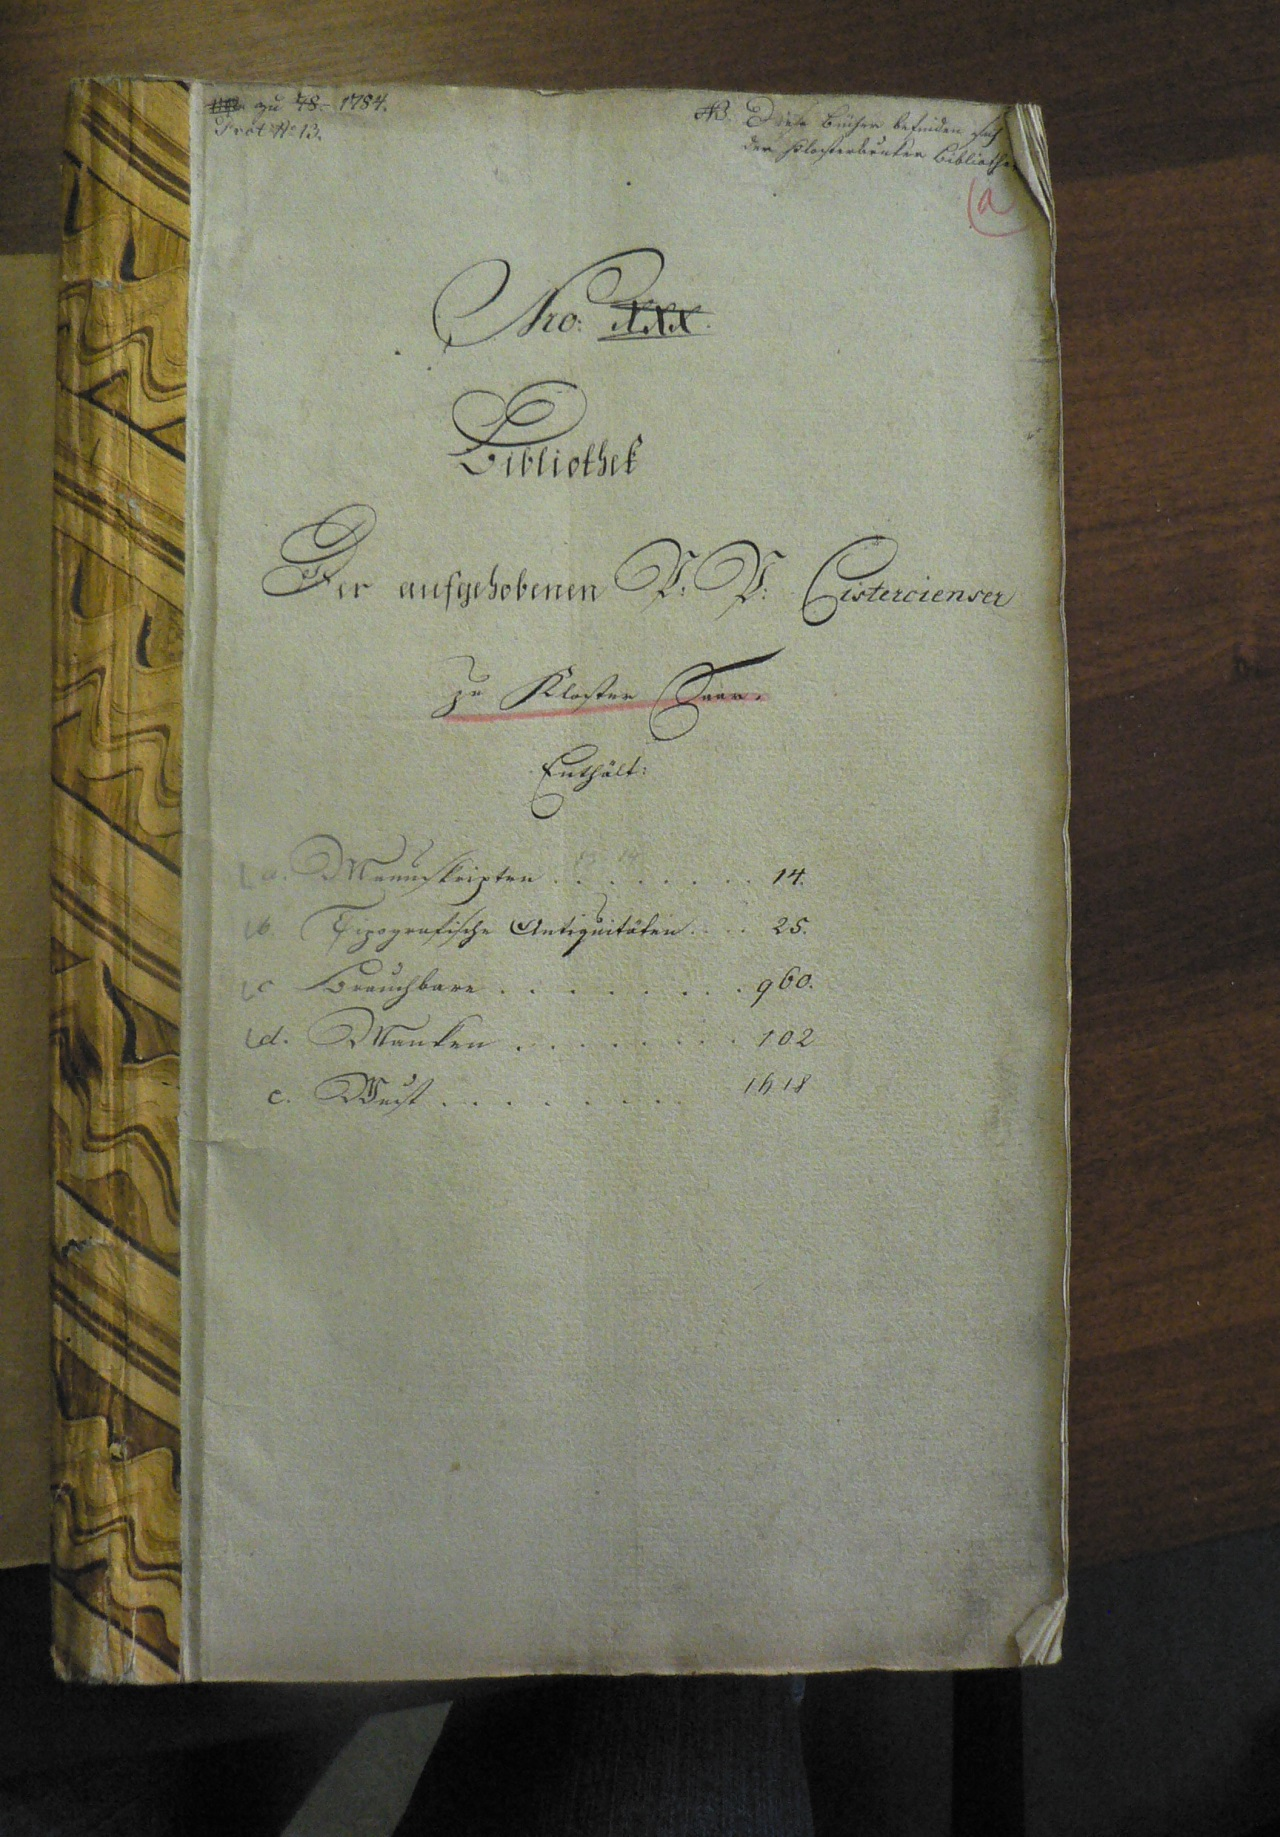 zu 78. 1784.
Prot: No 13.
NB. Diese Bücher befinden sich
der Klosterbrucker Bibliothe
a
Nro: XXX.
Bibliothek
Der aufgehobenen P: P: Cistercienser
zu Kloster Saar.
Enthält:
a. Manuskripten . . . . . . . 14.
b. Tipografische Antiquitäten . . . 25.
c Brauchbare . . . . . . . 960.
d. Manken . . . . . . . 102
e. Wust . . . . . . . 1618